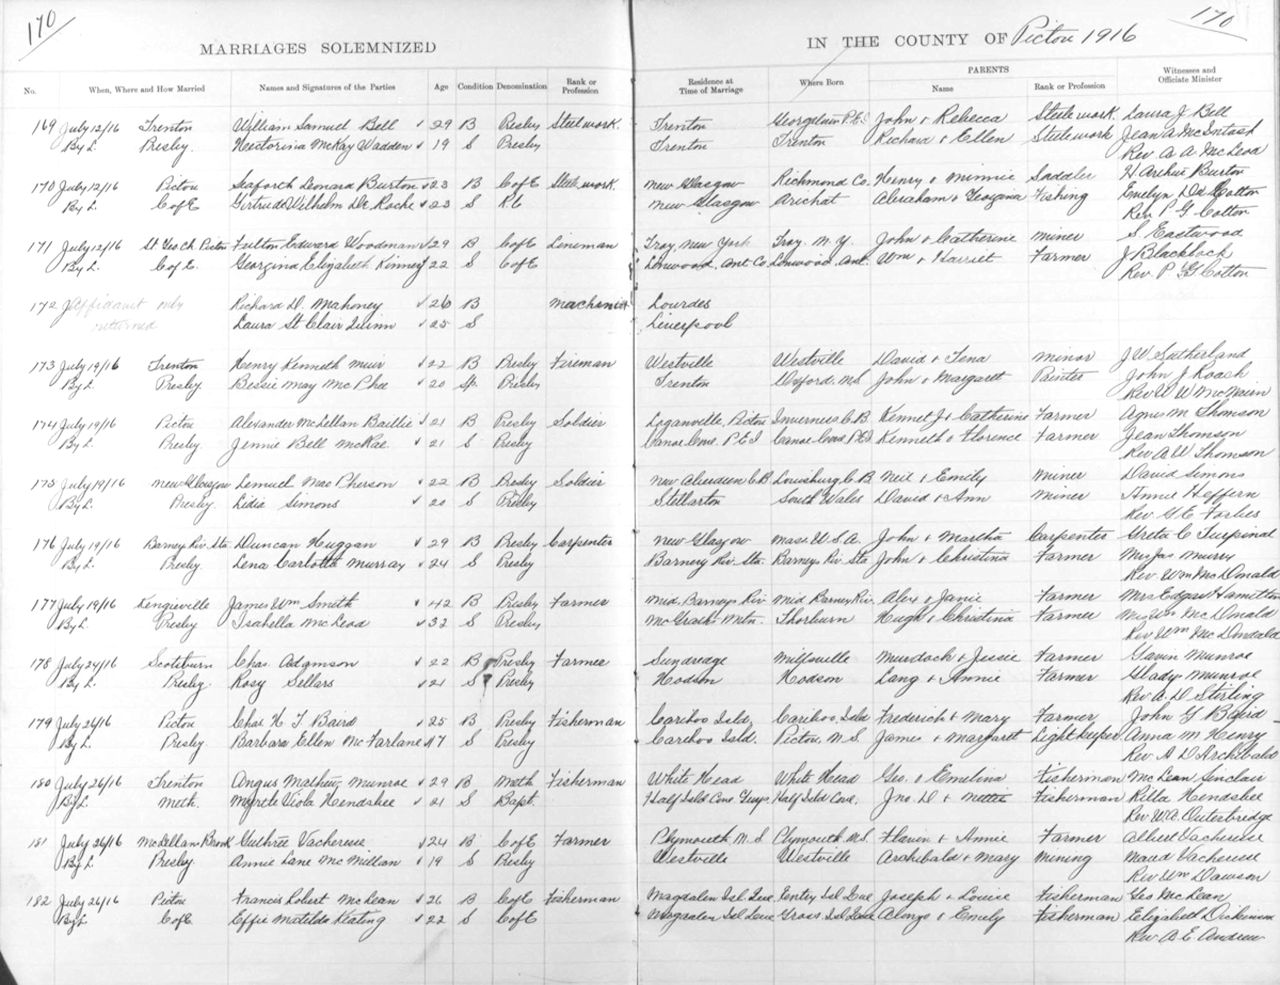 170
170
MARRIAGES SOLEMNIZED
IN THE COUNTY OF Pictou 1916
No. When, Where and How Married Names and Signatures of the Parties Age Condition Denomination Rank or Profession Residence at Time of Marriage Where Born PARENTS Name Rank or Profession Witnesses and Officiate Minister
169 July 12/16 Trenton William Samuel Bell 29 B Presby Steel work. Trenton Georgetown P.E.I John & Rebecca Steel work. Laura J Bell
By L. Presby. McKay Wadden 19 S Presby Trenton Trenton Richard & Ellen Steel work Jean A McIntosh
Rev A A McLeod
170 July 12/16 Pictou Seaforth Leonard Burton 23 B C of E Steel work. New Glasgow Richmond Co. Henry & Minnie Saddler H Arthur Burton
By L. C of E Gertrude De Roche 23 S R C New Glasgow Arichat Abraham & Georgina Fishing Emelyn Cotton
Rev P G Cotton
171 July 12/16 St Geo Ch Pictou Fulton Edward Woodman 29 B C of E Lineman Troy, New York Troy. N.Y. John & Catherine Miner S Eastwood
By L. C of E. Georgina Elizabeth Kinney 22 S C of E Linwood, Ant. Co. Linwood Ant. Wm & Harriet Farmer J Blacklock
Rev P G Cotton
172 Affidavit only Richard D. Mahoney 26 B Machinist Lourdes
returned Laura St Clair Quinn 25 S Liverpool
173 July 19/16 Trenton Henry Kenneth Muir 22 B Presby Fireman Westville Westville David & Tena Minor J W Sutherland
By L. Presby Bessie May McPhee 20 Sp. Presby Trenton Oxford. N.S. John & Margaret Painter John J Roach
Rev W W McNairn
174 July 19/16 Pictou Alexander McLellan Baillie 21 B Presby Soldier Loganville, Pictou Inverness C.B. Kennet J & Catherine Farmer Agnes M Thomson
By L. Presby. Jennie Bell McRae 21 S Presby Canoe Cove. P.E.I Canoe Cove. P.E.I Kenneth & Florence Farmer Jean Thomson
Rev A W Thomson
175 July 19/16 New Glasgow Lemuel MacPherson 22 B Presby Soldier New Aberdeen C.B Louisburg C.B Neil & Emily Miner David Simons
By L. Presby. Lidia Simons 20 S Presby Stellarton South Wales David & Ann Miner Annie Heffern
Rev G E Forbes
176 July 19/16 Barneys Riv. Sta. Duncan Huggan 29 B Presby Carpenter New Glasgow Mass U.S.A. John & Martha Carpenter Greta C Turpinal
By L. Presby. Lena Carlotta Murray 24 S Presby Barneys Riv. Sta. Barneys Riv. Sta John & Christina Farmer Mrs Jas Murry
Rev. Wm McDonald
177 July 19/16 Kenzieville James Wm Smith 42 B Presby Farmer Mid. Barneys Riv Mid Barneys Riv. Alex & Janie Farmer Mrs Edgar Hamilton
By L. Presby Isabella McLeod 32 S Presby McGrath Mtn. Thorburn Hugh & Christina Farmer McDonald
Rev Wm McDonald
178 July 24/16 Scotsburn Chas. Adamson 22 B Presby Farmer Sundredge Millsville Murdock & Jessie Farmer Gavin Munroe
By L. Presby. Rosy Sellars 21 S Presby Hodson Hodson Lang & Annie Farmer Gladys Munroe
Rev A. D Sterling
179 July 26/16 Pictou Chas H T Baird 25 B Presby Fisherman Cariboo Isld, Cariboo Isld Frederick & Mary Farmer John G Baird
By L. Presby. Barbara Ellen McFarlane 17 S Presby Cariboo Isld. Pictou, N.S. James & Margaret Light keeper Anna M Henry
Rev A D Archibald
180 July 26/16 Trenton Angus Mathew Munroe 29 B Meth. Fisherman White Head White Head Geo. & Emelina Fisherman McLean Sinclair
By L Meth. Myrtle Viola Hendsbee 21 S Bapt. Half Isld Cove Guys. Half Isld Cove. Jno. D & Nettie Fisherman Rilla Hendsbee
Rev W.A. Outerbridge
181 July 26/16 McLellans Brook Guthrie Vacheresse 24 B C of E Farmer Plymouth N.S Plymouth N.S. Flavin & Annie Farmer Albert Vacheresse
By L Presby. Annie Lane McMillian 19 S Presby Westville Westville Archibald & Mary Mining Maud Vacheresse
Rev Wm Dawson
182 July 26/16 Pictou Francis Robert McLean 26 B C of E Fisherman Magdalen Isl. Que, Entry Isl Que Joseph & Louise Fisherman Geo McLean
By L C of E Effie Matilda Keating 22 S C of E Magdalen Isl Que Gross Isl. Que Alonzo & Emily Fisherman Elizabeth Dickinson
Rev A. E. Andrew